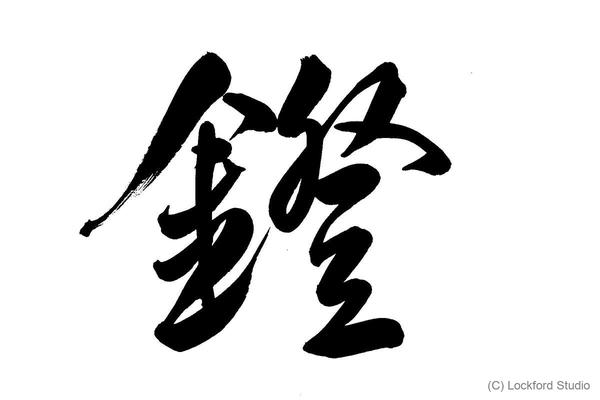 鐙
(C) Lockford Studio